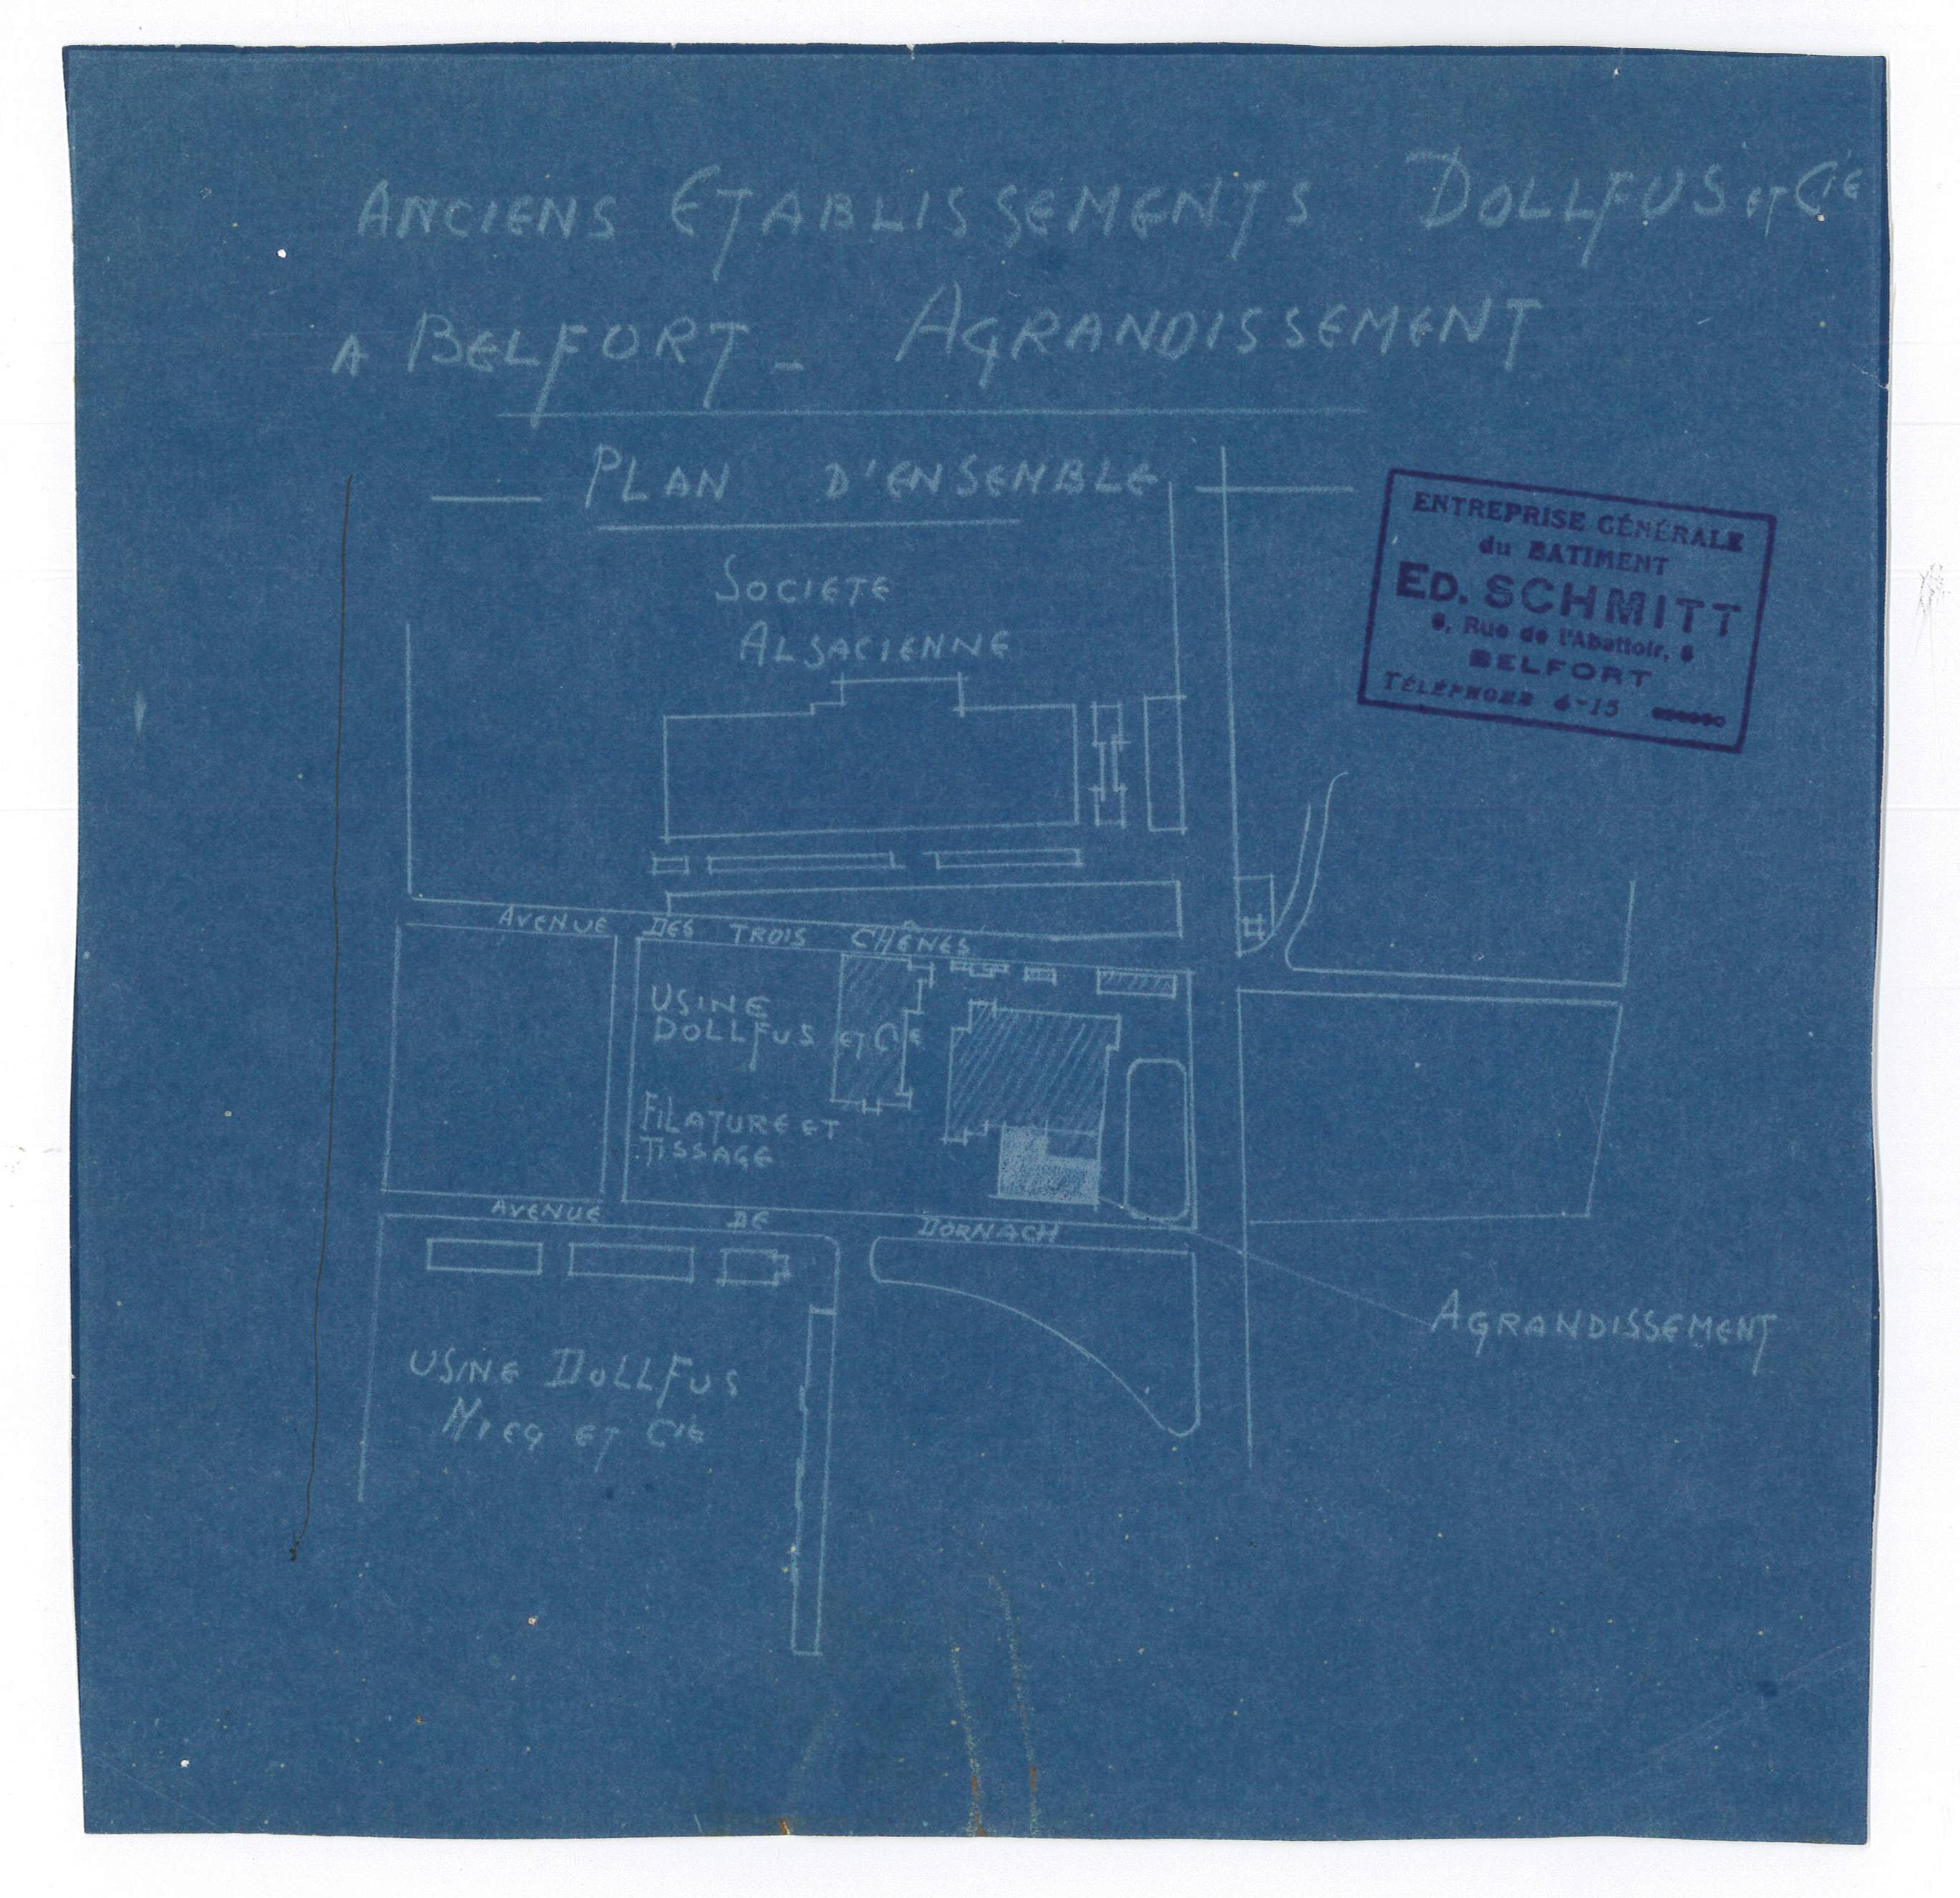 ANCIENS ETABLISSEMENTS DOLLFUS ET CIE
A BELFORT_ AGRANDISSEMENT
PLAN D'ENSEMBLE
ENTREPRISE GÉNÉRALE
du BATIMENT
ED. SCHMITT
6, Rue de l'Abattoir, 6
BELFORT
TÉLÉPHONE 4-15
SOCIETE
ALSACIENNE
AVENUE DES TROIS CHÊNES
USINE
DOLLFUS ET CIE
FILATURE ET
TISSAGE
AVENUE DE DORNACH
AGRANDISSEMENT
USINE DOLLFUS
ET CIE